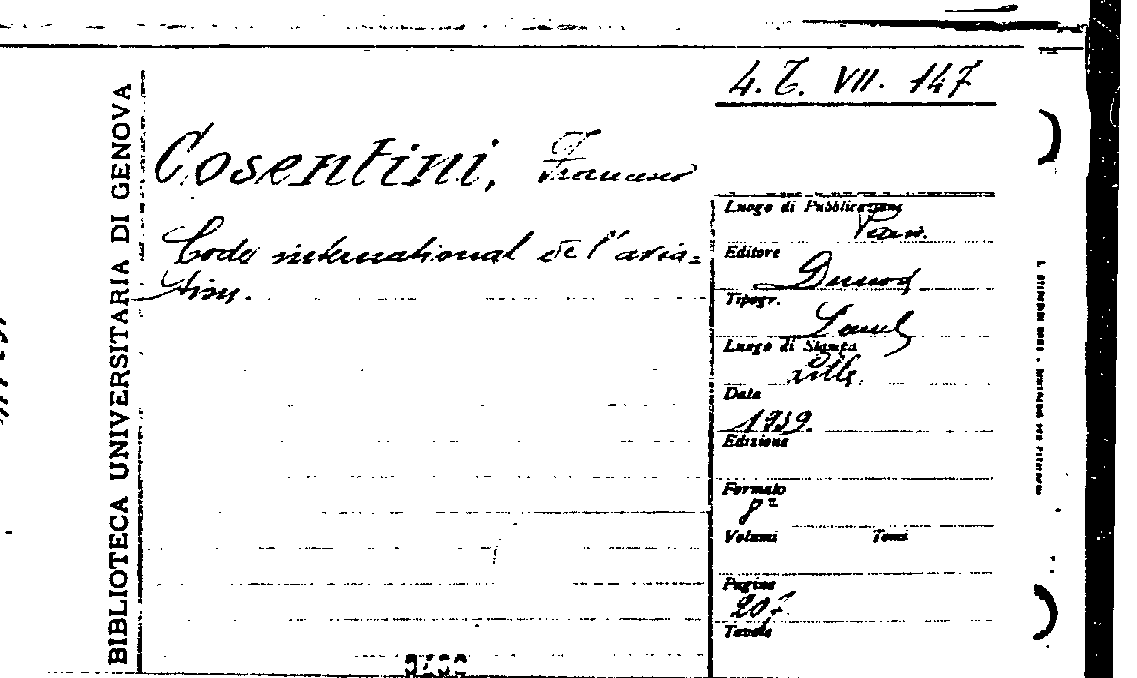 4. T. VII. 147
BIBLIOTECA UNIVERSITARIA DI GENOVA
Cosentini, Francesco
Code international de l'avia=
tion.
Luogo di Pubblicazione
Editore
Dunod
Tipogr.
Luogo di Stampa
Lille.
Data
1939.
Edizione
Formato
8º
Volumi Tomi
Pagine
207.
Tavole